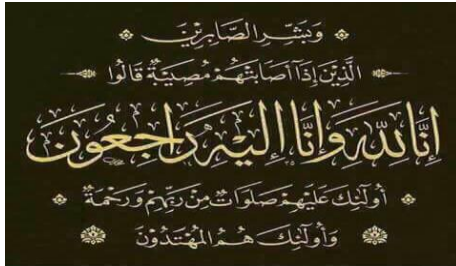 وَبَشِّرِ الصَّابِرِيْنَ
الَّذِيْنَ إِذَآ أَصَابَتْهُمْ مُصِيْبَةٌ قَالُوا
إِنَّا لِلّٰهِ وَإِنَّا إِلَيْهِ رَاجِعُونَ
أُولَٰئِكَ عَلَيْهِمْ صَلَوَاتٌ مِنْ رَبِّهِمْ وَرَحْمَةٌ
وَأُولَٰئِكَ هُمُ الْمُهْتَدُوْنَ